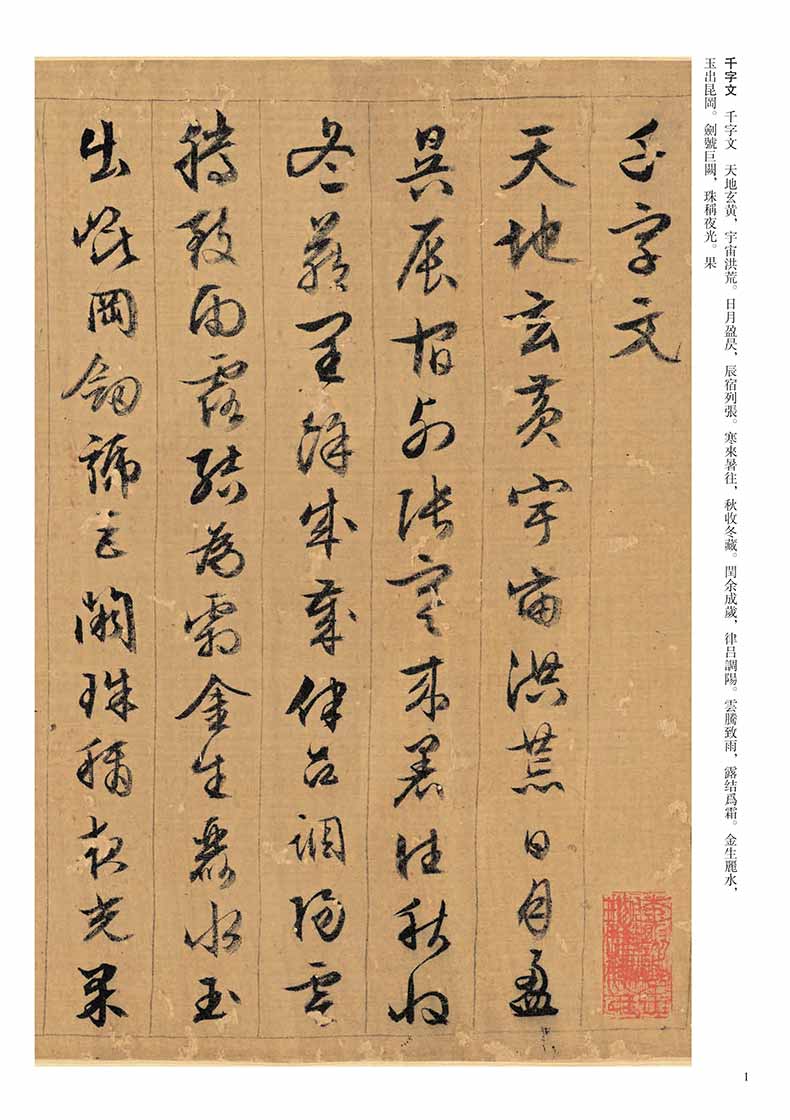 千字文　千字文　天地玄黄，宇宙洪荒。日月盈昃，辰宿列張。寒來暑往，秋收冬藏。閏余成歲，律吕調陽。雲騰致雨，露结爲霜。金生麗水，
玉出昆岡。劍號巨闕，珠稱夜光。果
千字文
天地玄黄宇宙洪荒日月盈
昃辰宿列張寒来暑往秋收
冬藏閏餘成歲律吕調陽雲
騰致雨露結為霜金生麗水玉
出崐岡劍號巨闕珠稱夜光果
1